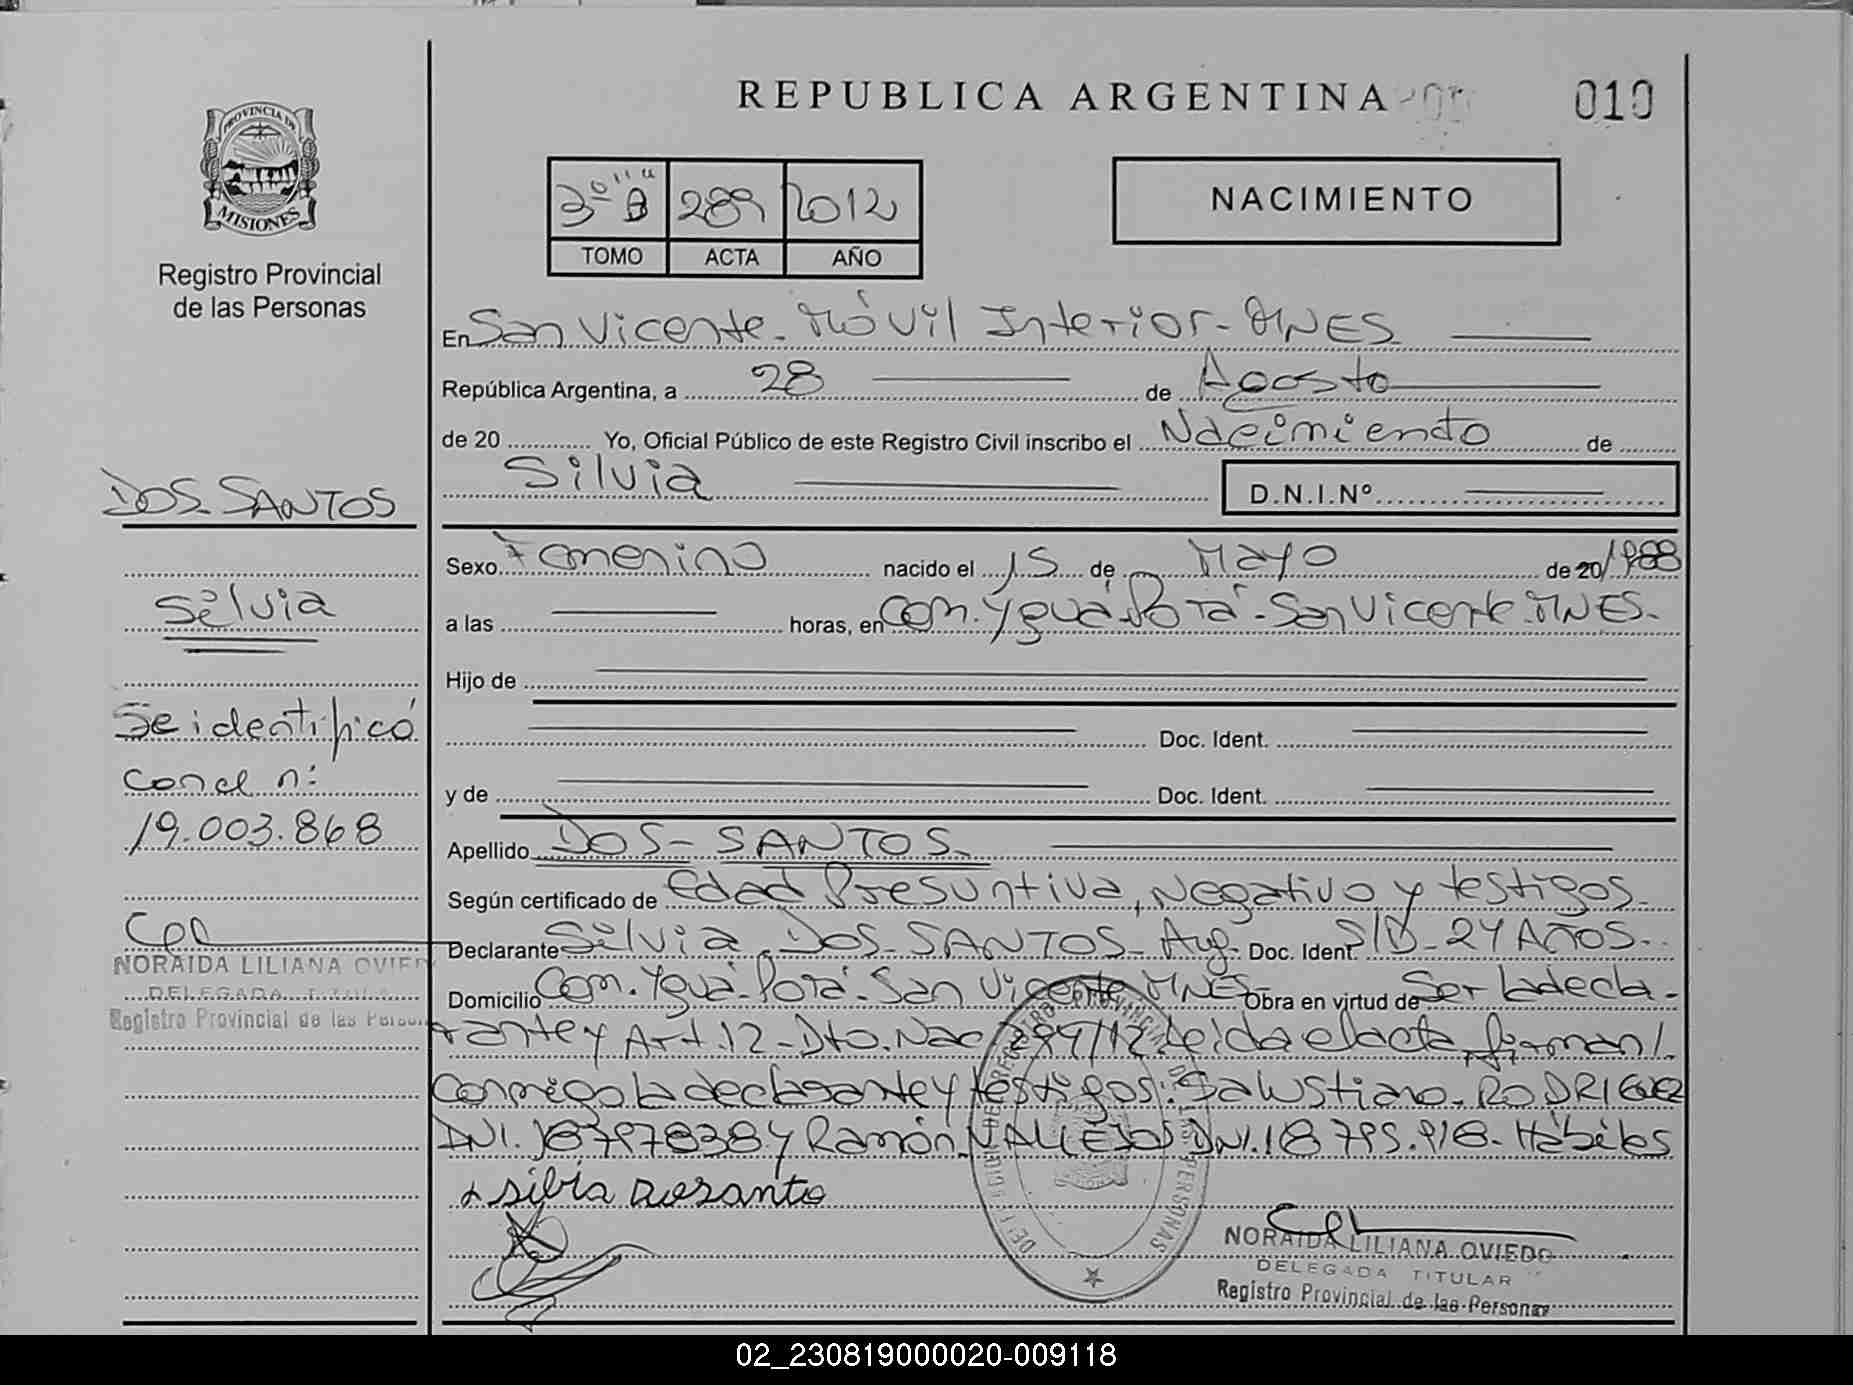 REPUBLICA ARGENTINA
010
PROVINCIA DE
MISIONES
Registro Provincial
de las Personas
3º "B" 289 2012
TOMO ACTA AÑO
NACIMIENTO
En San Vicente - Móvil Interior - MNES
República Argentina, a 28 de Agosto
de 20 Yo, Oficial Público de este Registro Civil inscribo el Nacimiento de
Silvia D.N.I.Nº
Sexo Femenino nacido el 15 de Mayo de 20/1988
a las horas, en Com. Yguá-Porá - San Vicente - MNES -
Hijo de
Doc. Ident.
y de Doc. Ident.
Apellido DOS-SANTOS -
Según certificado de Edad Presuntiva, Negativo y testigos -
Declarante Silvia DOS-SANTOS - Arg. Doc. Ident. S/D - 24 AÑOS -
Domicilio Com. Yguá-Porá - San Vicente MNES - Obra en virtud de Ser la decla-
rante y Art. 12 - Dto. Nac 294/12 Leída el acta, firman/
conmigo la declarante y testigos: Salustiano - RODRIGUEZ
DNI. 18797838 y Ramón VALLEJOS DNI. 18 795.918 - Hábiles
silvia
NORAIDA LILIANA OVIEDO
DELEGADA TITULAR
Registro Provincial de las Personas
DOS-SANTOS
Silvia
Se identificó
con el n:
19.003.868
NORAIDA LILIANA OVIED
DELEGADA TITULA
Registro Provincial de las Person
02_230819000020-009118